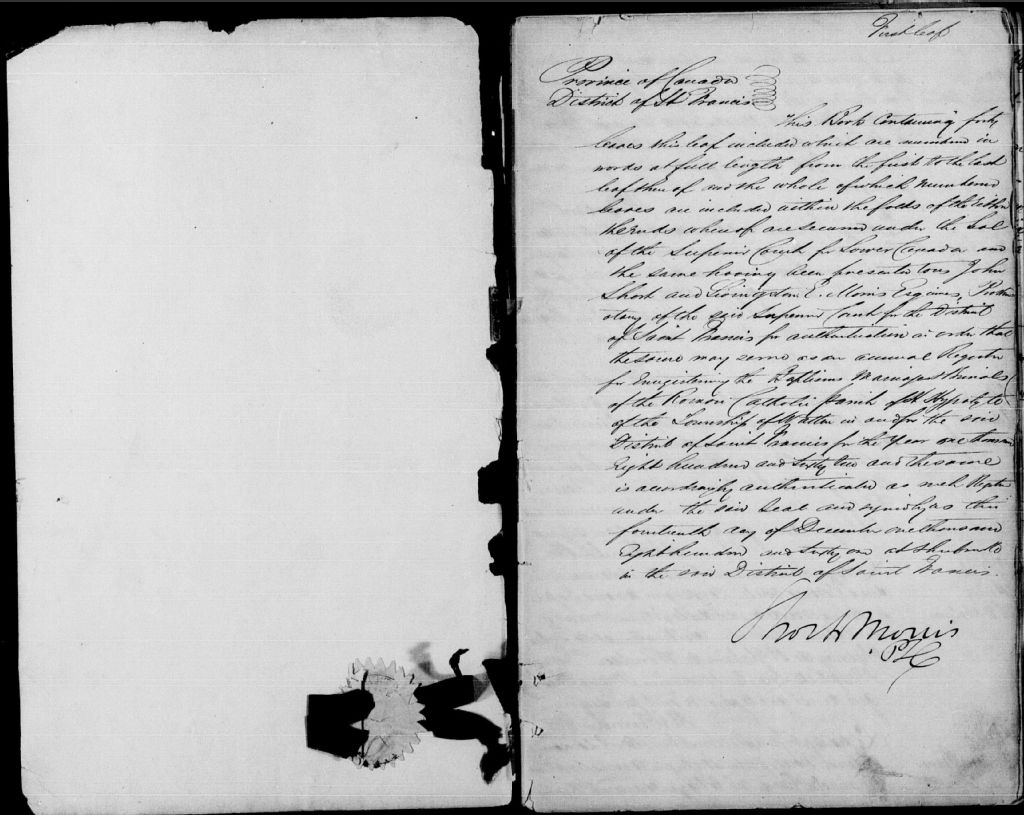 First leaf
Province of Canada
District of St Francis
This Book Containing forty
leaves this leaf included which are numbered in
words at full length from the first to the last
leaf thereof and the whole of which numbered
leaves are included within the folds of the ribbon
the ends whereof are secured under the Seal
of the Superior Court for Lower Canada and
the same having been presented to us John
Short and Livingston E. Morris Esquires, Prothon
otary of the said Superior Court for the District
of Saint Francis for authentication in order that
the same may serve as an annual Register
for Enregistering the Baptisms Marriages & Burials
of the Roman Catholic Parish of St Hypolyte
of the Township of Wotton in and for the said
District of Saint Francis for the Year one thousand
Eight hundred and sixty two and the same
is accordingly authenticated as such Register
under the said Seal and signed by us this
fourteenth day of December one thousand
Eight hundred and sixty one at Sherbrooke
in the said District of Saint Francis.
Short & Morris
P.S.C